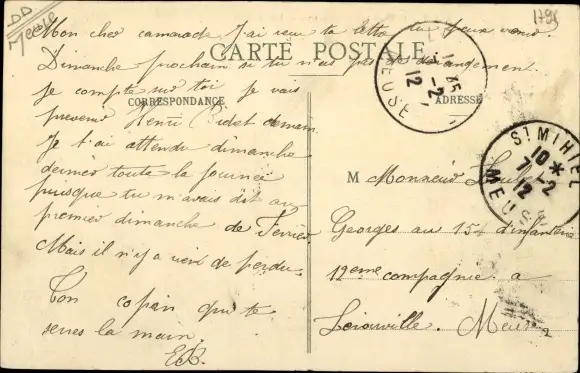 DD
Meuse
1795
CARTE POSTALE
CORRESPONDANCE
ADRESSE
Mon cher camarade J'ai reçu ta lettre tu peux venir
Dimanche prochain si tu n'as pas de dérangement.
Je compte sur toi je vais
prévenir Henri Bidet demain.
Je t'ai attendu dimanche
dernier toute la journée
puisque tu m'avais dit au
premier dimanche de Février.
Mais il n'y a rien de perdu.
Ton copain qui te
serres la main.
EB.
MEUSE
12
ST MIHIEL
10 *
7 -2
12
MEUSE
M Monsieur
Georges au 154 d'infanterie
12eme compagnie a
Lérouville. Meuse